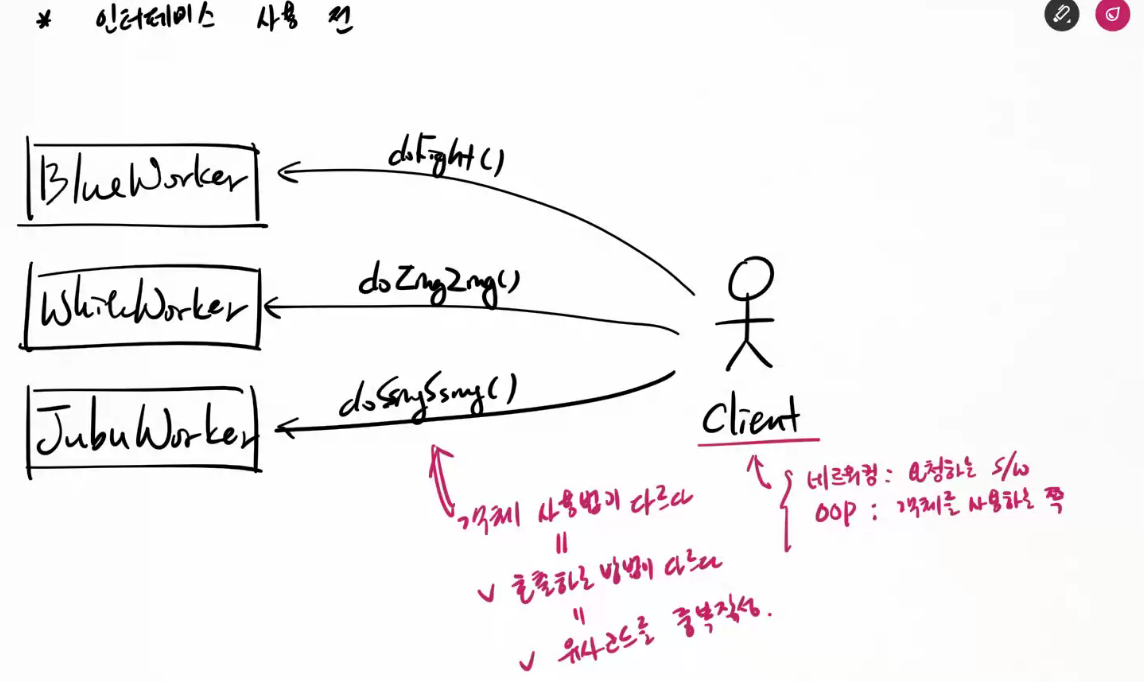 * 인터페이스 사용 전
BlueWorker
doFight()
WhiteWorker
doZingZing()
JubuWorker
doSsingSsing()
Client
네트워킹 : 요청하는 S/W
OOP : 객체를 사용하는 쪽
객체 사용법이 다르다
=
✓ 호출하는 방법이 다르다
=
✓ 유사코드를 중복작성.